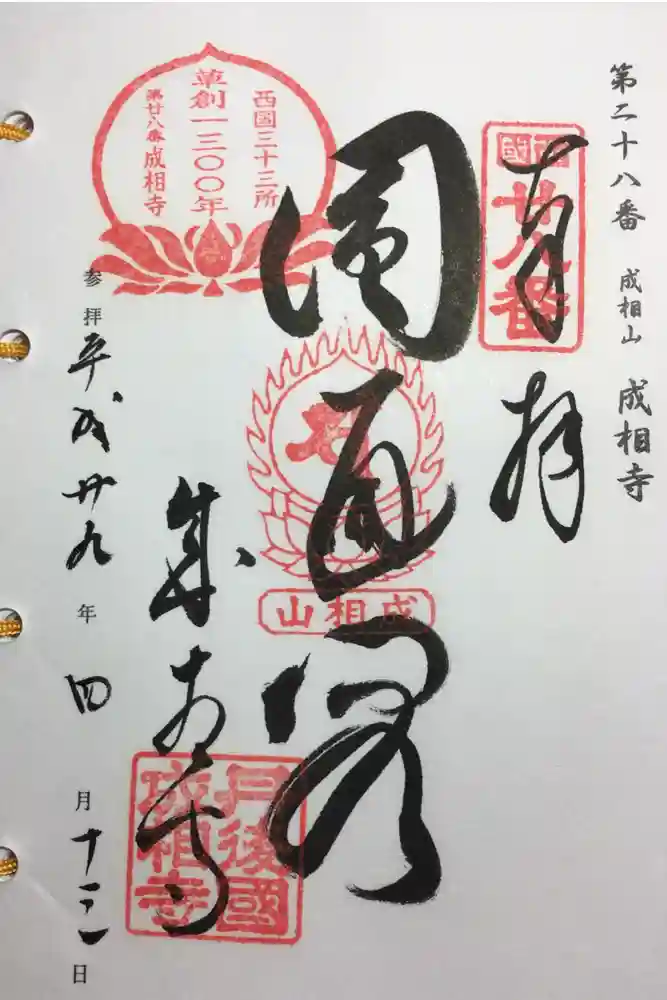 第二十八番 成相山 成相寺
奉拝
西國
廿八番
圓通閣
成相山
西国三十三所
草創一三〇〇年
第廿八番 成相寺
成相寺
丹後國
成相寺
参拝 平成廿九年四月十三日